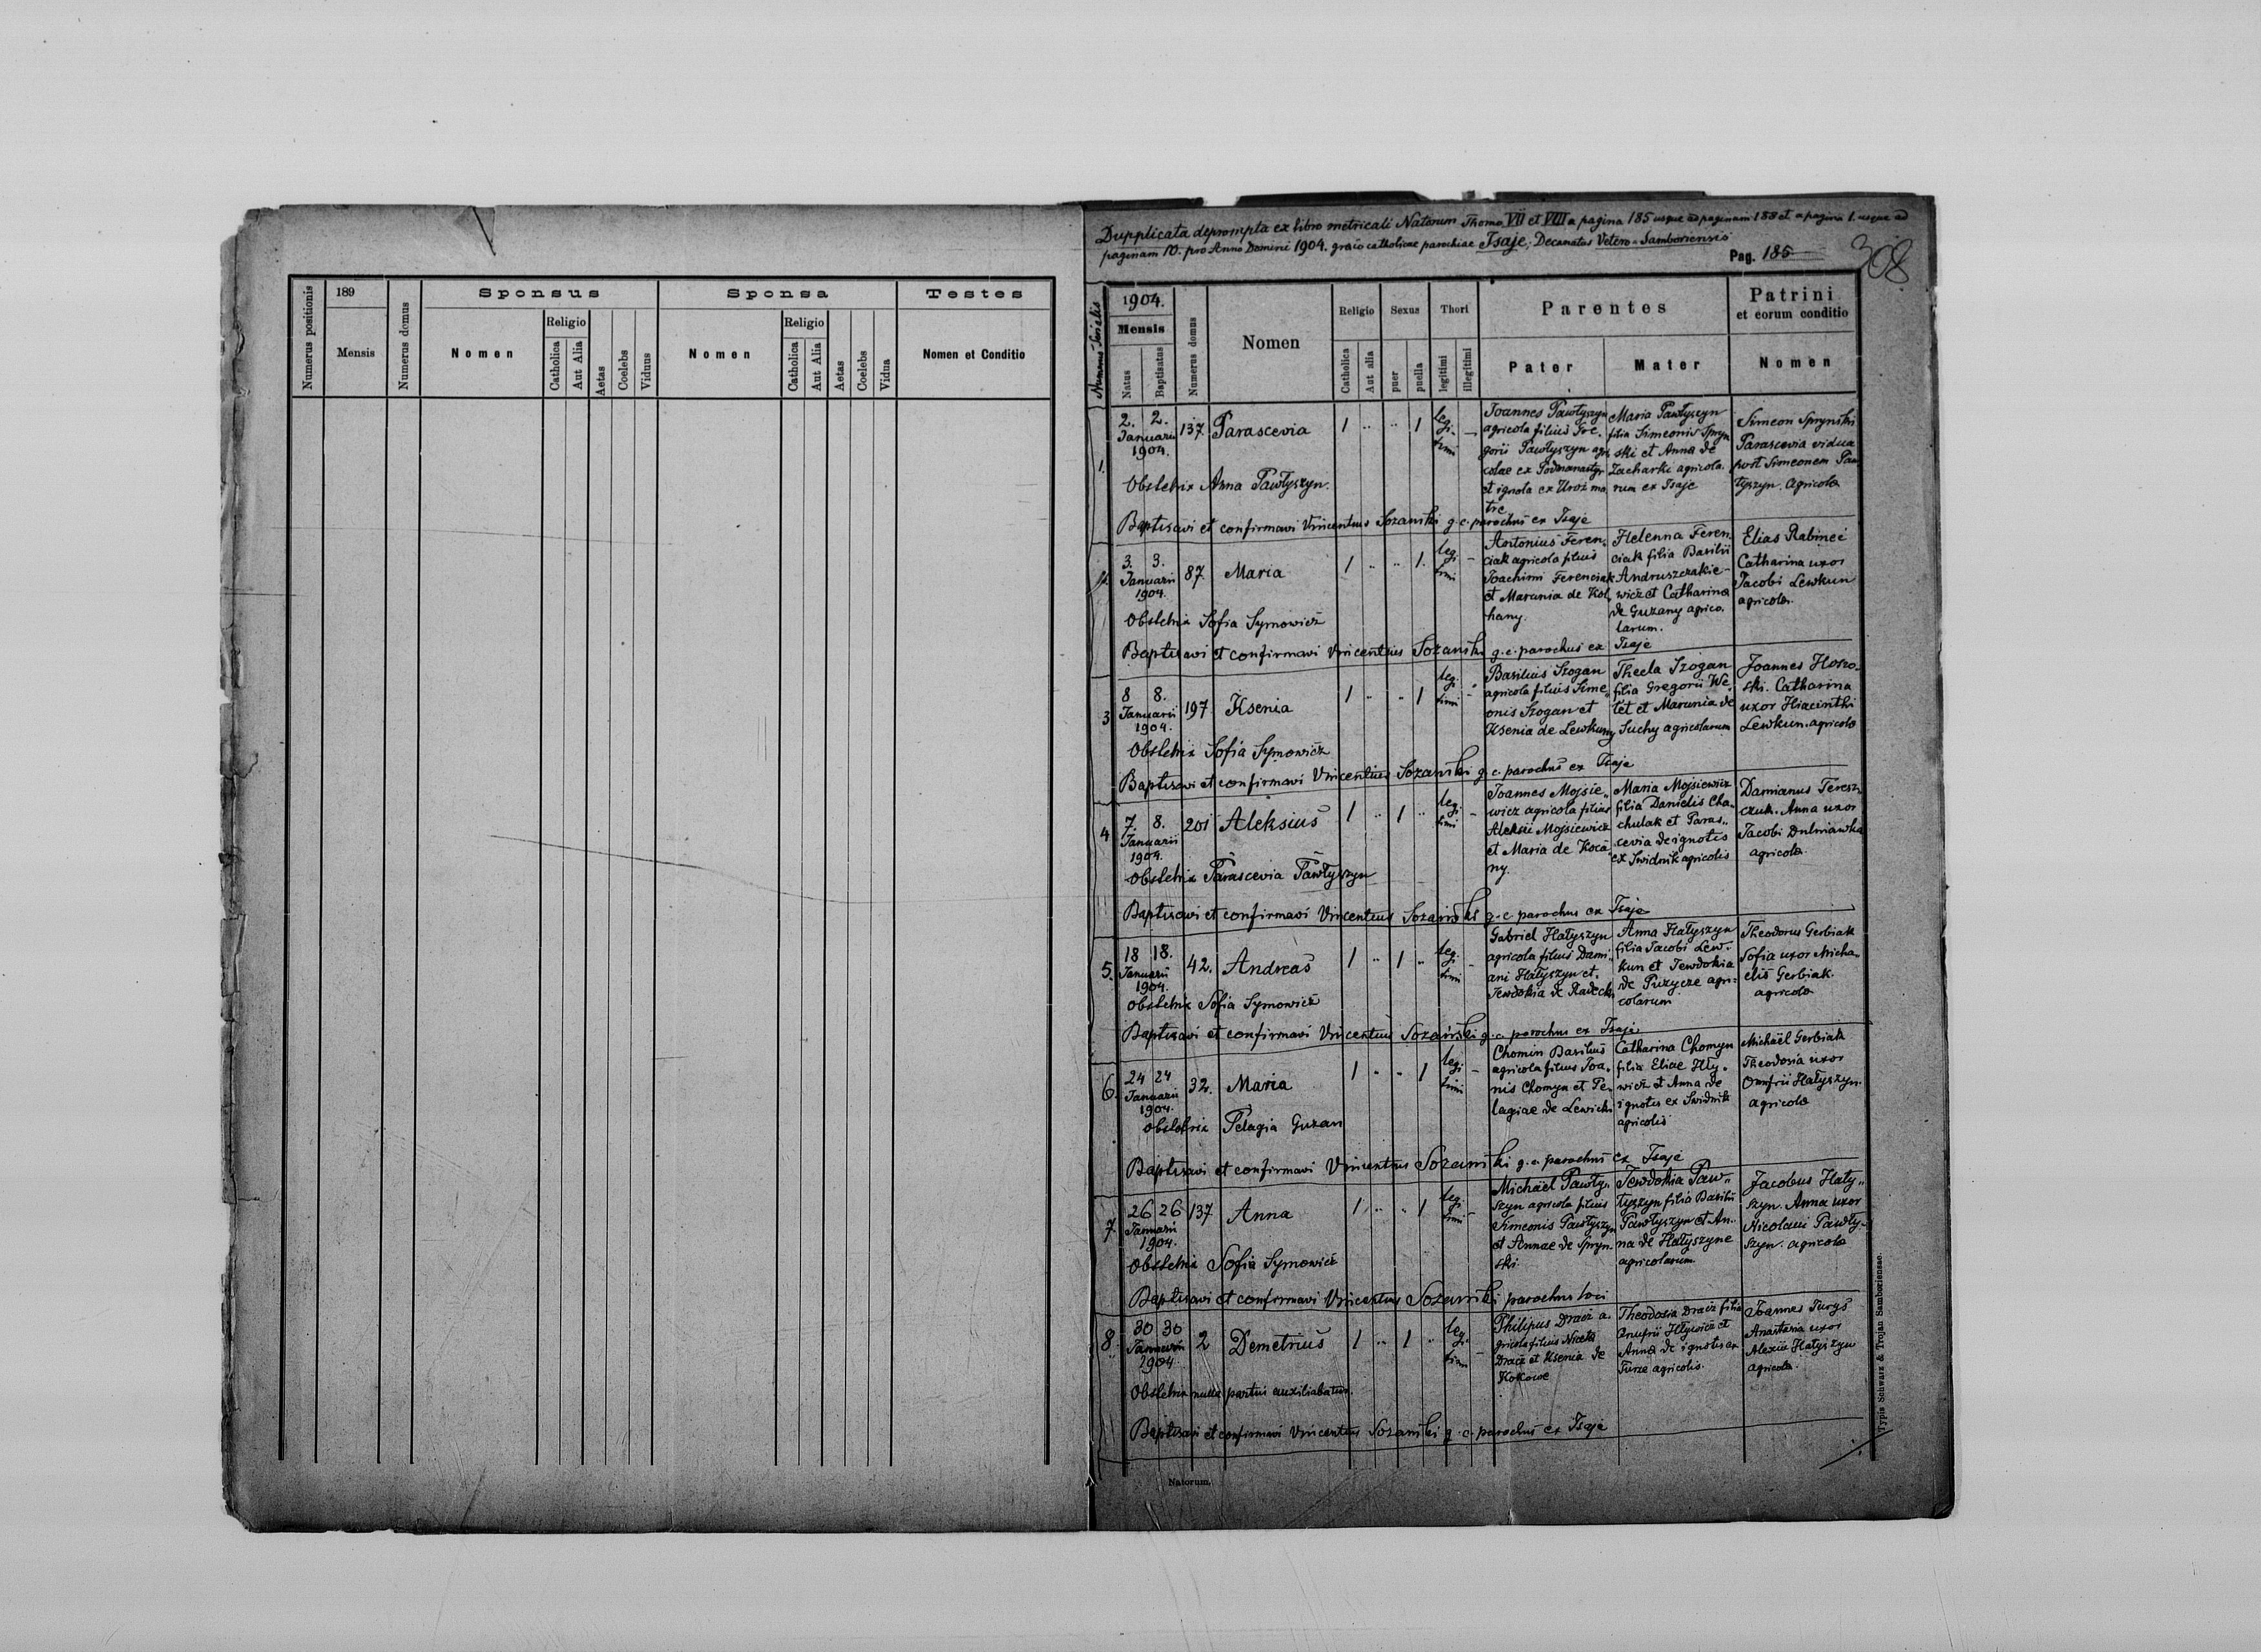 Numerus positionis
189
Mensis
Numerus domus
Sponsus
Nomen
Religio
Catholica
Aut Alia
Aetas
Coelebs
Viduus
Sponsa
Nomen
Religio
Catholica
Aut Alia
Aetas
Coelebs
Vidua
Testes
Nomen et Conditio
Dupplicata deprompta ex libro metricali Natorum Thomo VII et VIII a pagina 185 usque ad paginam 188 et a pagina 1. usque ad
paginam 10. pro Anno Domini 1904. graeco catholicae parochiae Isaje, Decanatus Vetero-Samboriensis
Pag. 185
308
Numerus Serielis
1904.
Mensis
Natus
Baptisatus
Numerus domus
Nomen
Religio
Catholica
Aut alia
Sexus
puer
puella
Thori
legitimi
illegitimi
Parentes
Pater
Mater
Patrini
et eorum conditio
Nomen
1.
2. 2.
Januarii
1904.
137
Parascevia
1 " " 1
legi-
timi
Joannes Pawłyszyn
agricola filius Gre-
gorii Pawłyszyn agri
colae ex Podmanastyr
et ignota ex Uroż ma
tre
Maria Pawłyszyn
filia Simeonis Spryn
ski et Anna de
Zacharki agricola.
rum ex Isaje
Simeon Sprynski
Parascevia vidua
post Simeonem Paw
łyszyn. agricola
Obstetrix Anna Pawłyszyn.
Baptisavi et confirmavi Vincentius Sozański g. c. parochus ex Isaje
2.
3. 3.
Januarii
1904.
87.
Maria
1 " " 1.
legi
timi
Antonius Feren-
ciak agricola filius
Joachimi Ferenciak
et Marunia de Kol
hany.
Helenna Feren.
ciak filia Basilii
Andruszczakie-
wicz et Catharina
de Guzany agrico.
larum.
Elias Rabineć
Catharina uxor
Jacobi Lewkun
agricola.
Obstetrix Sofia Symowicz
Baptisavi et confirmavi Vincentius Sozański g. c. parochus ex Isaje
3
8 8.
Januarii
1904.
197
Ksenia
1 " " 1
legi
timi
Basilius Szogan
agricola filius Sime
onis Szogan et
Ksenia de Lewkuny
Thecla Szogan
filia Gregorii We
let et Marunia de
Suchy agricolarum
Joannes Horo-
ski. Catharina
uxor Hiacinthi
Lewkun. agricola
Obstetrix Sofia Symowicz
Baptisavi et confirmavi Vincentius Sozański g. c. parochus ex Isaje
4
7. 8.
Januarii
1904.
201
Aleksius
1 " 1 "
legi
timi
Joannes Mojsie"
wicz agricola filius
Aleksii Mojsiewicz
et Maria de Koca
ny.
Maria Mojsiewicz
filia Danielis Cha"
chulak et Paras"
cevia de ignotis
ex Swidnik agricolis
Damianus Teresz"
czuk. Anna uxor
Jacobi Dulniawka
agricola.
Obstetrix Parascevia Pawłyszyn
Baptisavi et confirmavi Vincentius Sozański g. c. parochus ex Isaje
5.
18 18.
Januarii
1904.
42.
Andreas
1 " 1 "
legi
timi
Gabriel Hatyszyn
agricola filius Dami
ani Hatyszyn et.
Jewdokia de Radecki
Anna Hatyszyn
filia Jacobi Lew-
kun et Jewdokia
de Puzycze agri-
colarum
Theodorus Gerbiak
Sofia uxor Micha"
elis Gerbiak.
agricola
Obstetrix Sofia Symowicz
Baptisavi et confirmavi Vincentius Sozański g. c. parochus ex Isaje
6.
24 24
Januarii
1904.
32.
Maria
1 " " 1
legi
timi
Chomin Basilius
agricola filius Joa-
nis Chomyn et Pe-
lagiae de Lewicki
Catharina Chomyn
filia Eliae Illy-
wicz et Anna de
ignotis ex Swidnik
agricolis
Michaël Gerbiak
Theodosia uxor
Onufrii Hatyszyn.
agricola
Obstetrix Pelagia Guzan
Baptisavi et confirmavi Vincentius Sozański g. c. parochus ex Isaje
7.
26 26
Januarii
1904.
137
Anna
1 " " 1
legi
timi
Michaël Pawły"
szyn agricola filius
Simeonis Pawłyszyn
et Annae de Spryn
ski
Jewdokia Paw"
łyszyn filia Basilii
Pawłyszyn et An-
na de Hatyszyne
agricolarum
Jacobus Haty"
szyn. Anna uxor
Nicolaii Pawły-
szyn. agricola
Obstetrix Sofia Symowicz
Baptisavi et confirmavi Vincentius Sozański parochus loci
8.
30 30
Januarii
1904.
2
Demetrius
1 " 1 "
legi
timi
Philipus Dracz a.
gricola filius Niceta
Dracz et Ksenia de
Kokowe
Theodosia Dracz filia
Onufrii Illywicz et
Anna de ignotis ex
Turze agricolis.
Joannes Turys
Anastasia uxor
Alexii Hatyszyn
agricola.
Obstetrix nulla partui auxiliabatur.
Baptisavi et confirmavi Vincentius Sozański g. c. parochus ex Isaje
Natorum.
Typis Schwarz & Trojan Samboriensae.